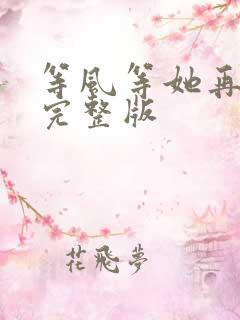 等风等她再
完整版
花飛夢